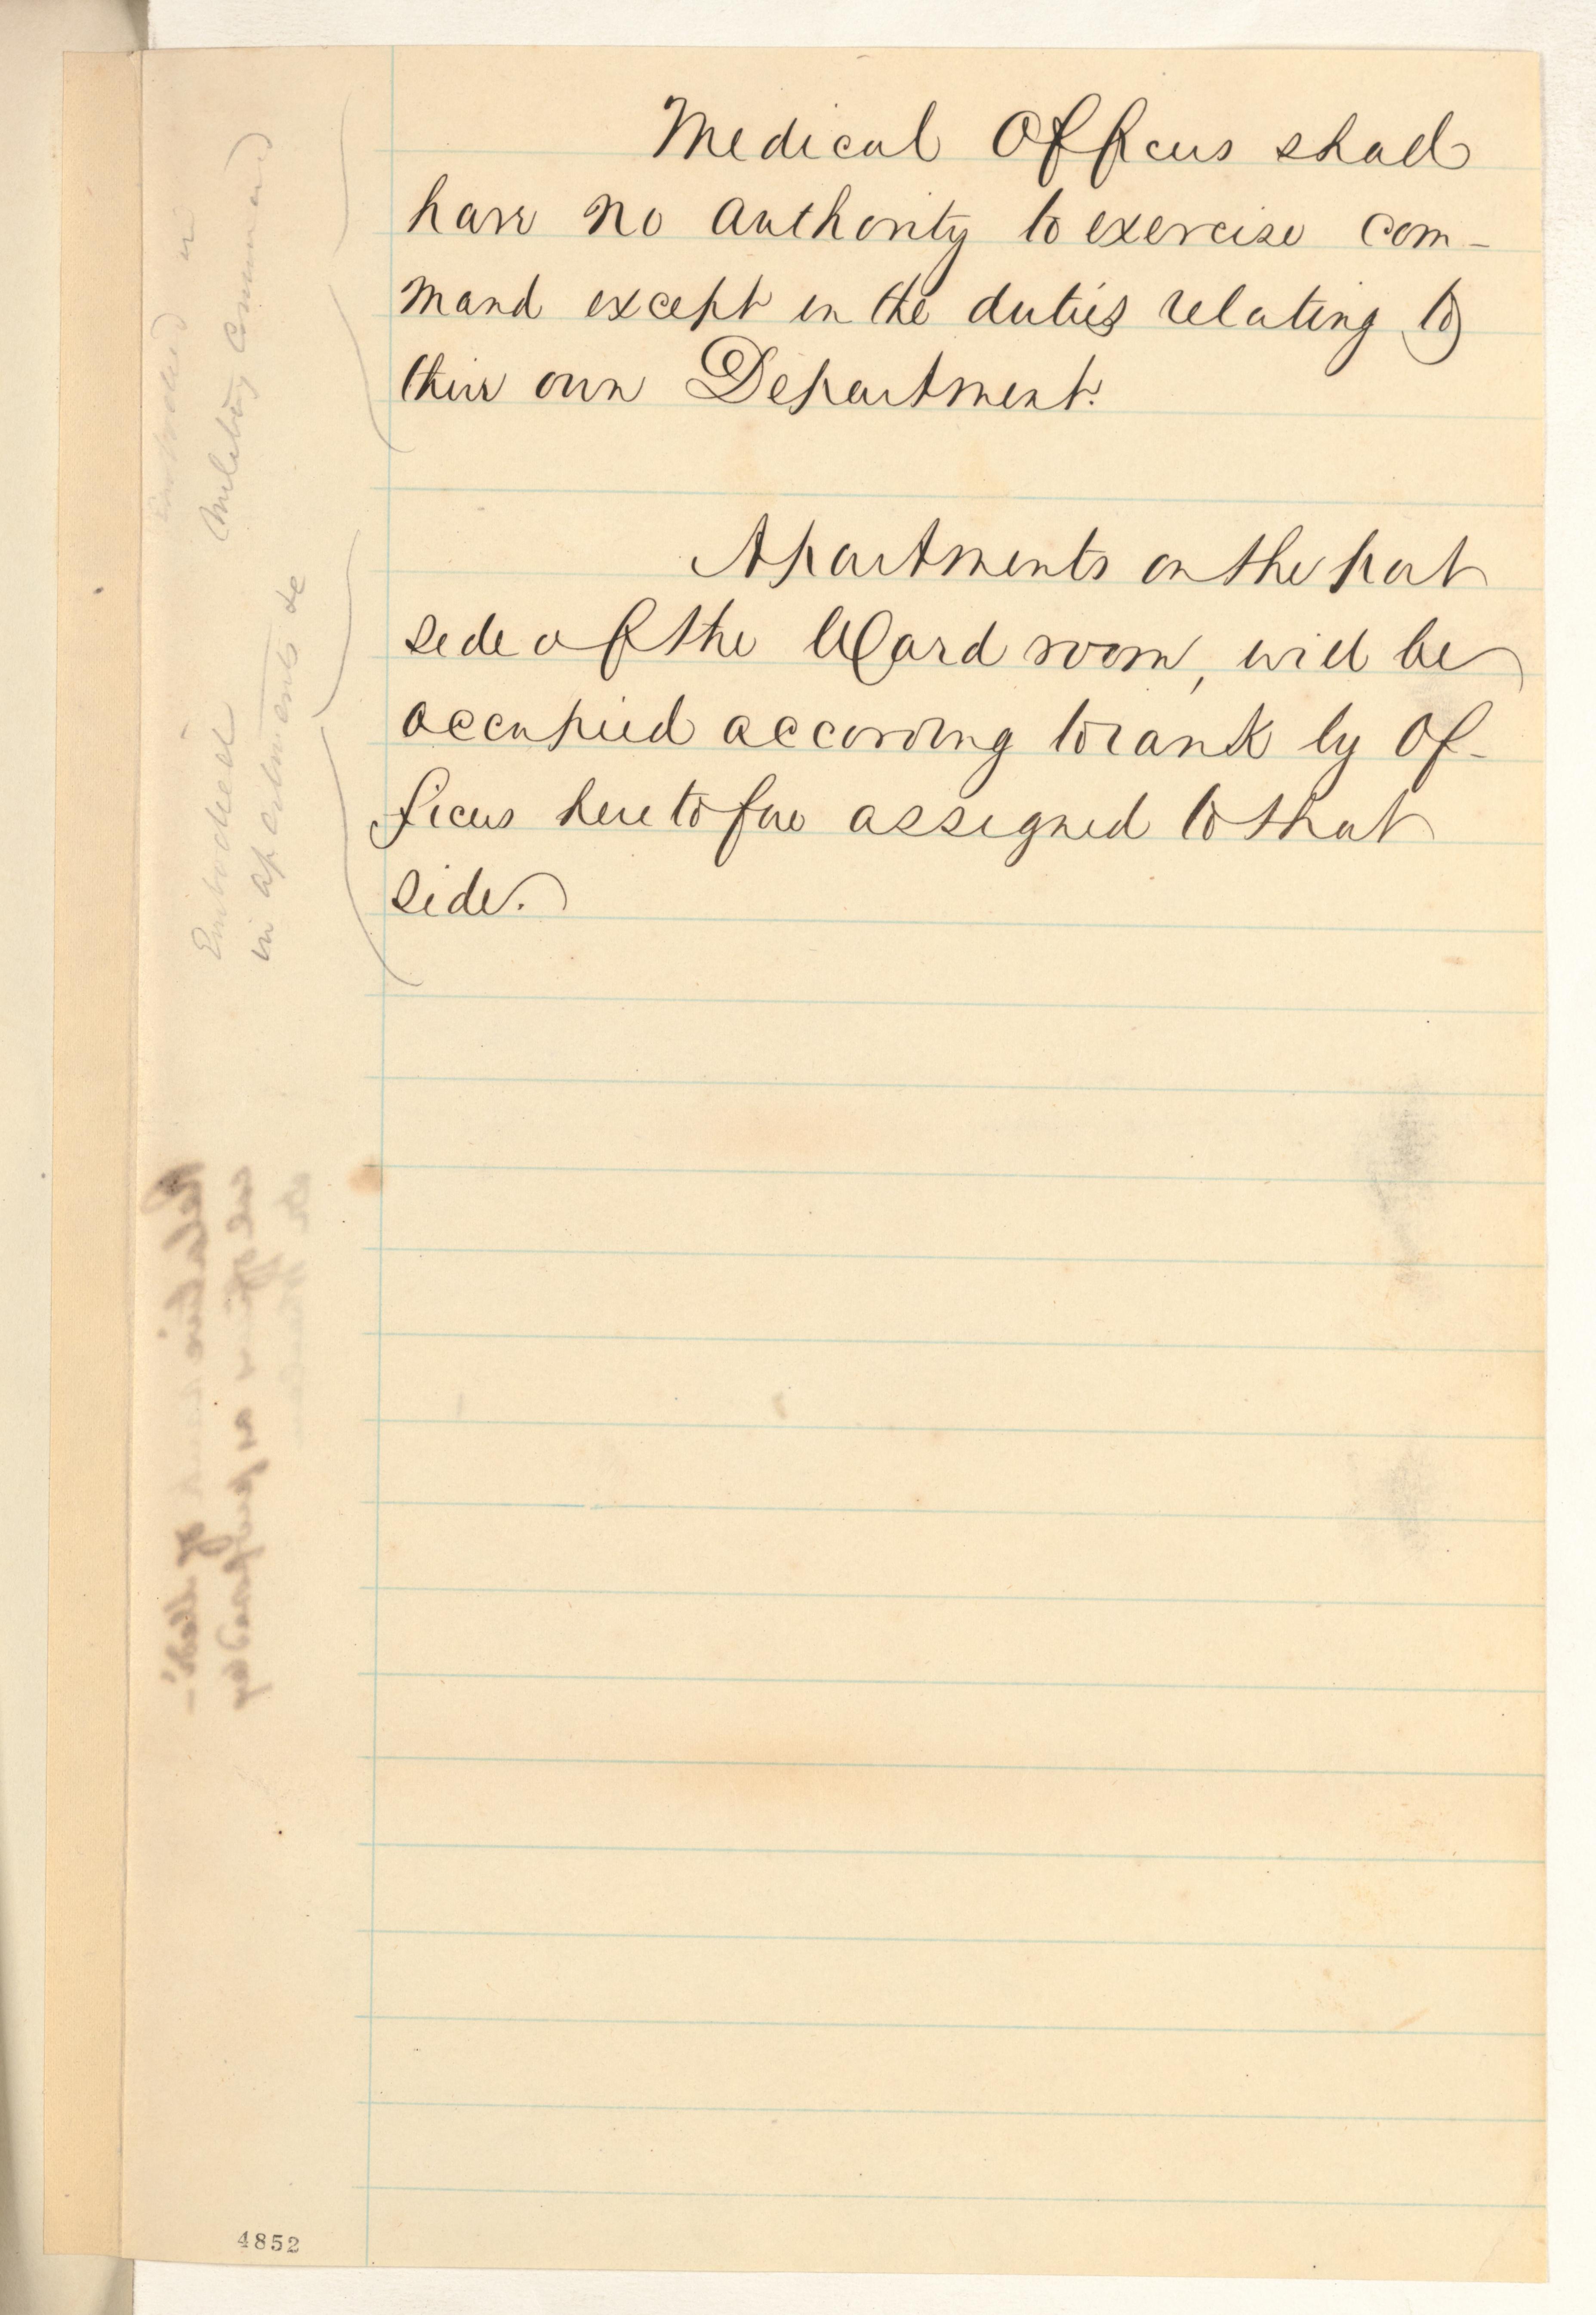 Medical Officers shall
have no authority to exercise com-
mand except in the duties relating to
their own Department.
Apartments on the port
side of the Ward room, will be
occupied according to rank by Of-
ficers heretofore assigned to that
side.
Embodied in
Military Command
Embodied
in apartments &c
4852